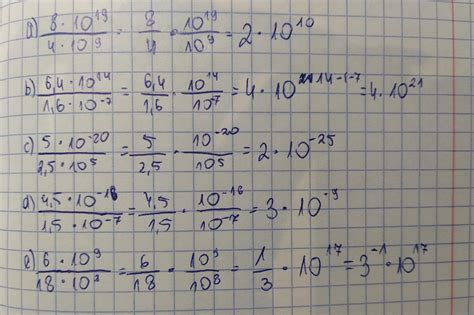 a) \frac{8 \cdot 10^{19}}{4 \cdot 10^{9}} = \frac{8}{4} \cdot \frac{10^{19}}{10^{9}} = 2 \cdot 10^{10}
b) \frac{6,4 \cdot 10^{14}}{1,6 \cdot 10^{-7}} = \frac{6,4}{1,6} \cdot \frac{10^{14}}{10^{7}} = 4 \cdot 10^{14-(-7} = 4 \cdot 10^{21}
c) \frac{5 \cdot 10^{-20}}{2,5 \cdot 10^{5}} = \frac{5}{2,5} \cdot \frac{10^{-20}}{10^{5}} = 2 \cdot 10^{-25}
d) \frac{4,5 \cdot 10^{-16}}{1,5 \cdot 10^{-7}} = \frac{4,5}{1,5} \cdot \frac{10^{-16}}{10^{-7}} = 3 \cdot 10^{-9}
e) \frac{6 \cdot 10^{9}}{18 \cdot 10^{8}} = \frac{6}{18} \cdot \frac{10^{9}}{10^{8}} = \frac{1}{3} \cdot 10^{17} = 3^{-1} \cdot 10^{17}